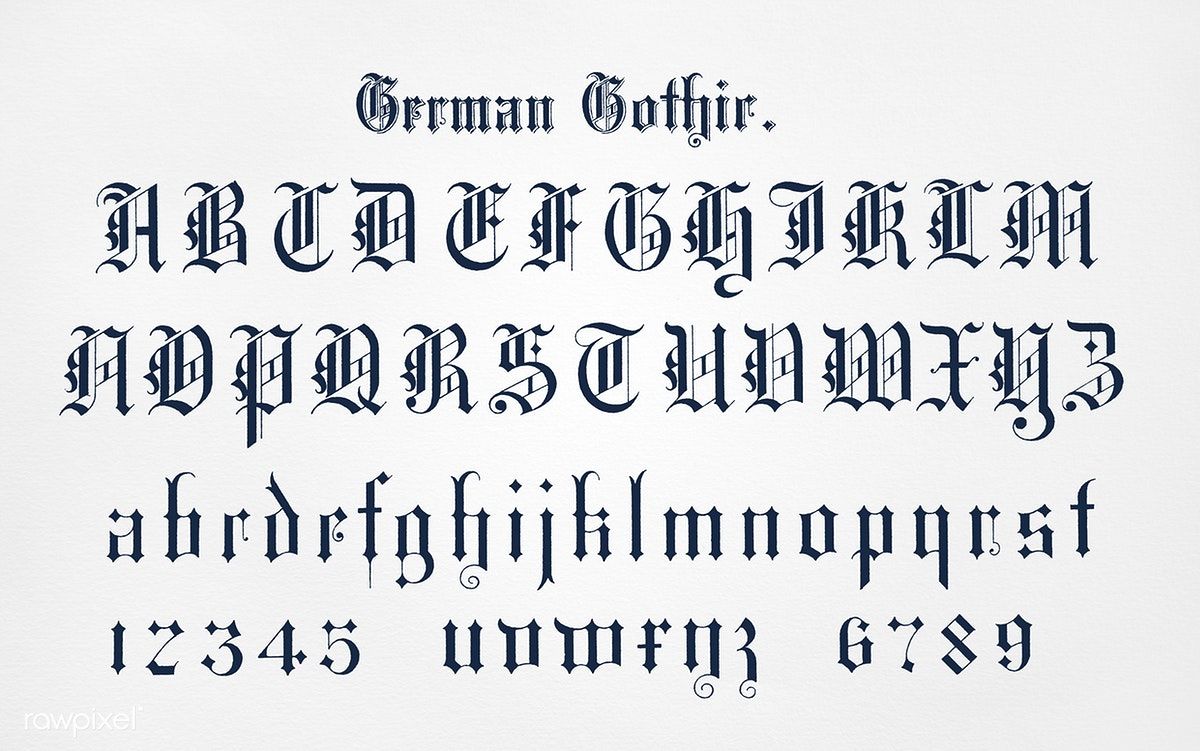 German Gothic.
A B C D E F G H I K L M
N O P Q R S T U V W X Y Z
a b c d e f g h i j k l m n o p q r s t
1 2 3 4 5 u v w x y z 6 7 8 9
rawpixel